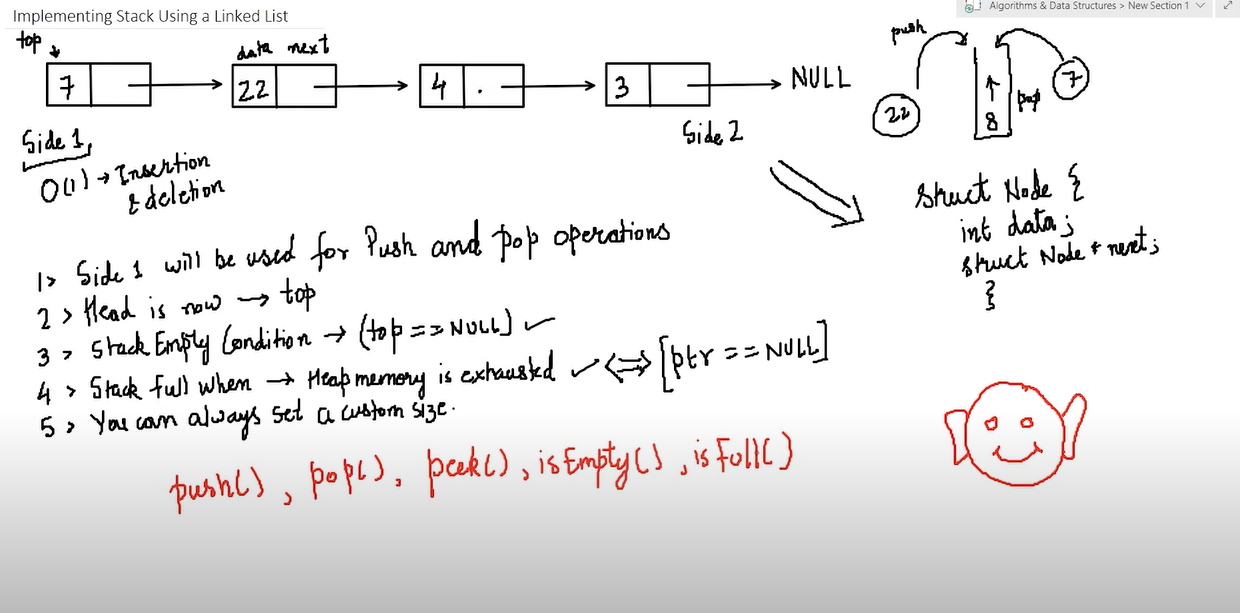 Implementing Stack Using a Linked List
Algorithms & Data Structures > New Section 1
top
data next
push
7
22
4 .
3
NULL
7
22
8
pop
Side 1
Side 2
O(1) → Insertion
& deletion
struct Node {
int data;
struct Node * next;
}
1> Side 1 will be used for Push and pop operations
2> Head is now → top
3> Stack Empty Condition → (top == NULL) ✓
4> Stack full when → Heap memory is exhausted ✓ ⟺ [ptr == NULL]
5> You can always set a custom size.
push(), pop(), peek(), isEmpty(), isFull()